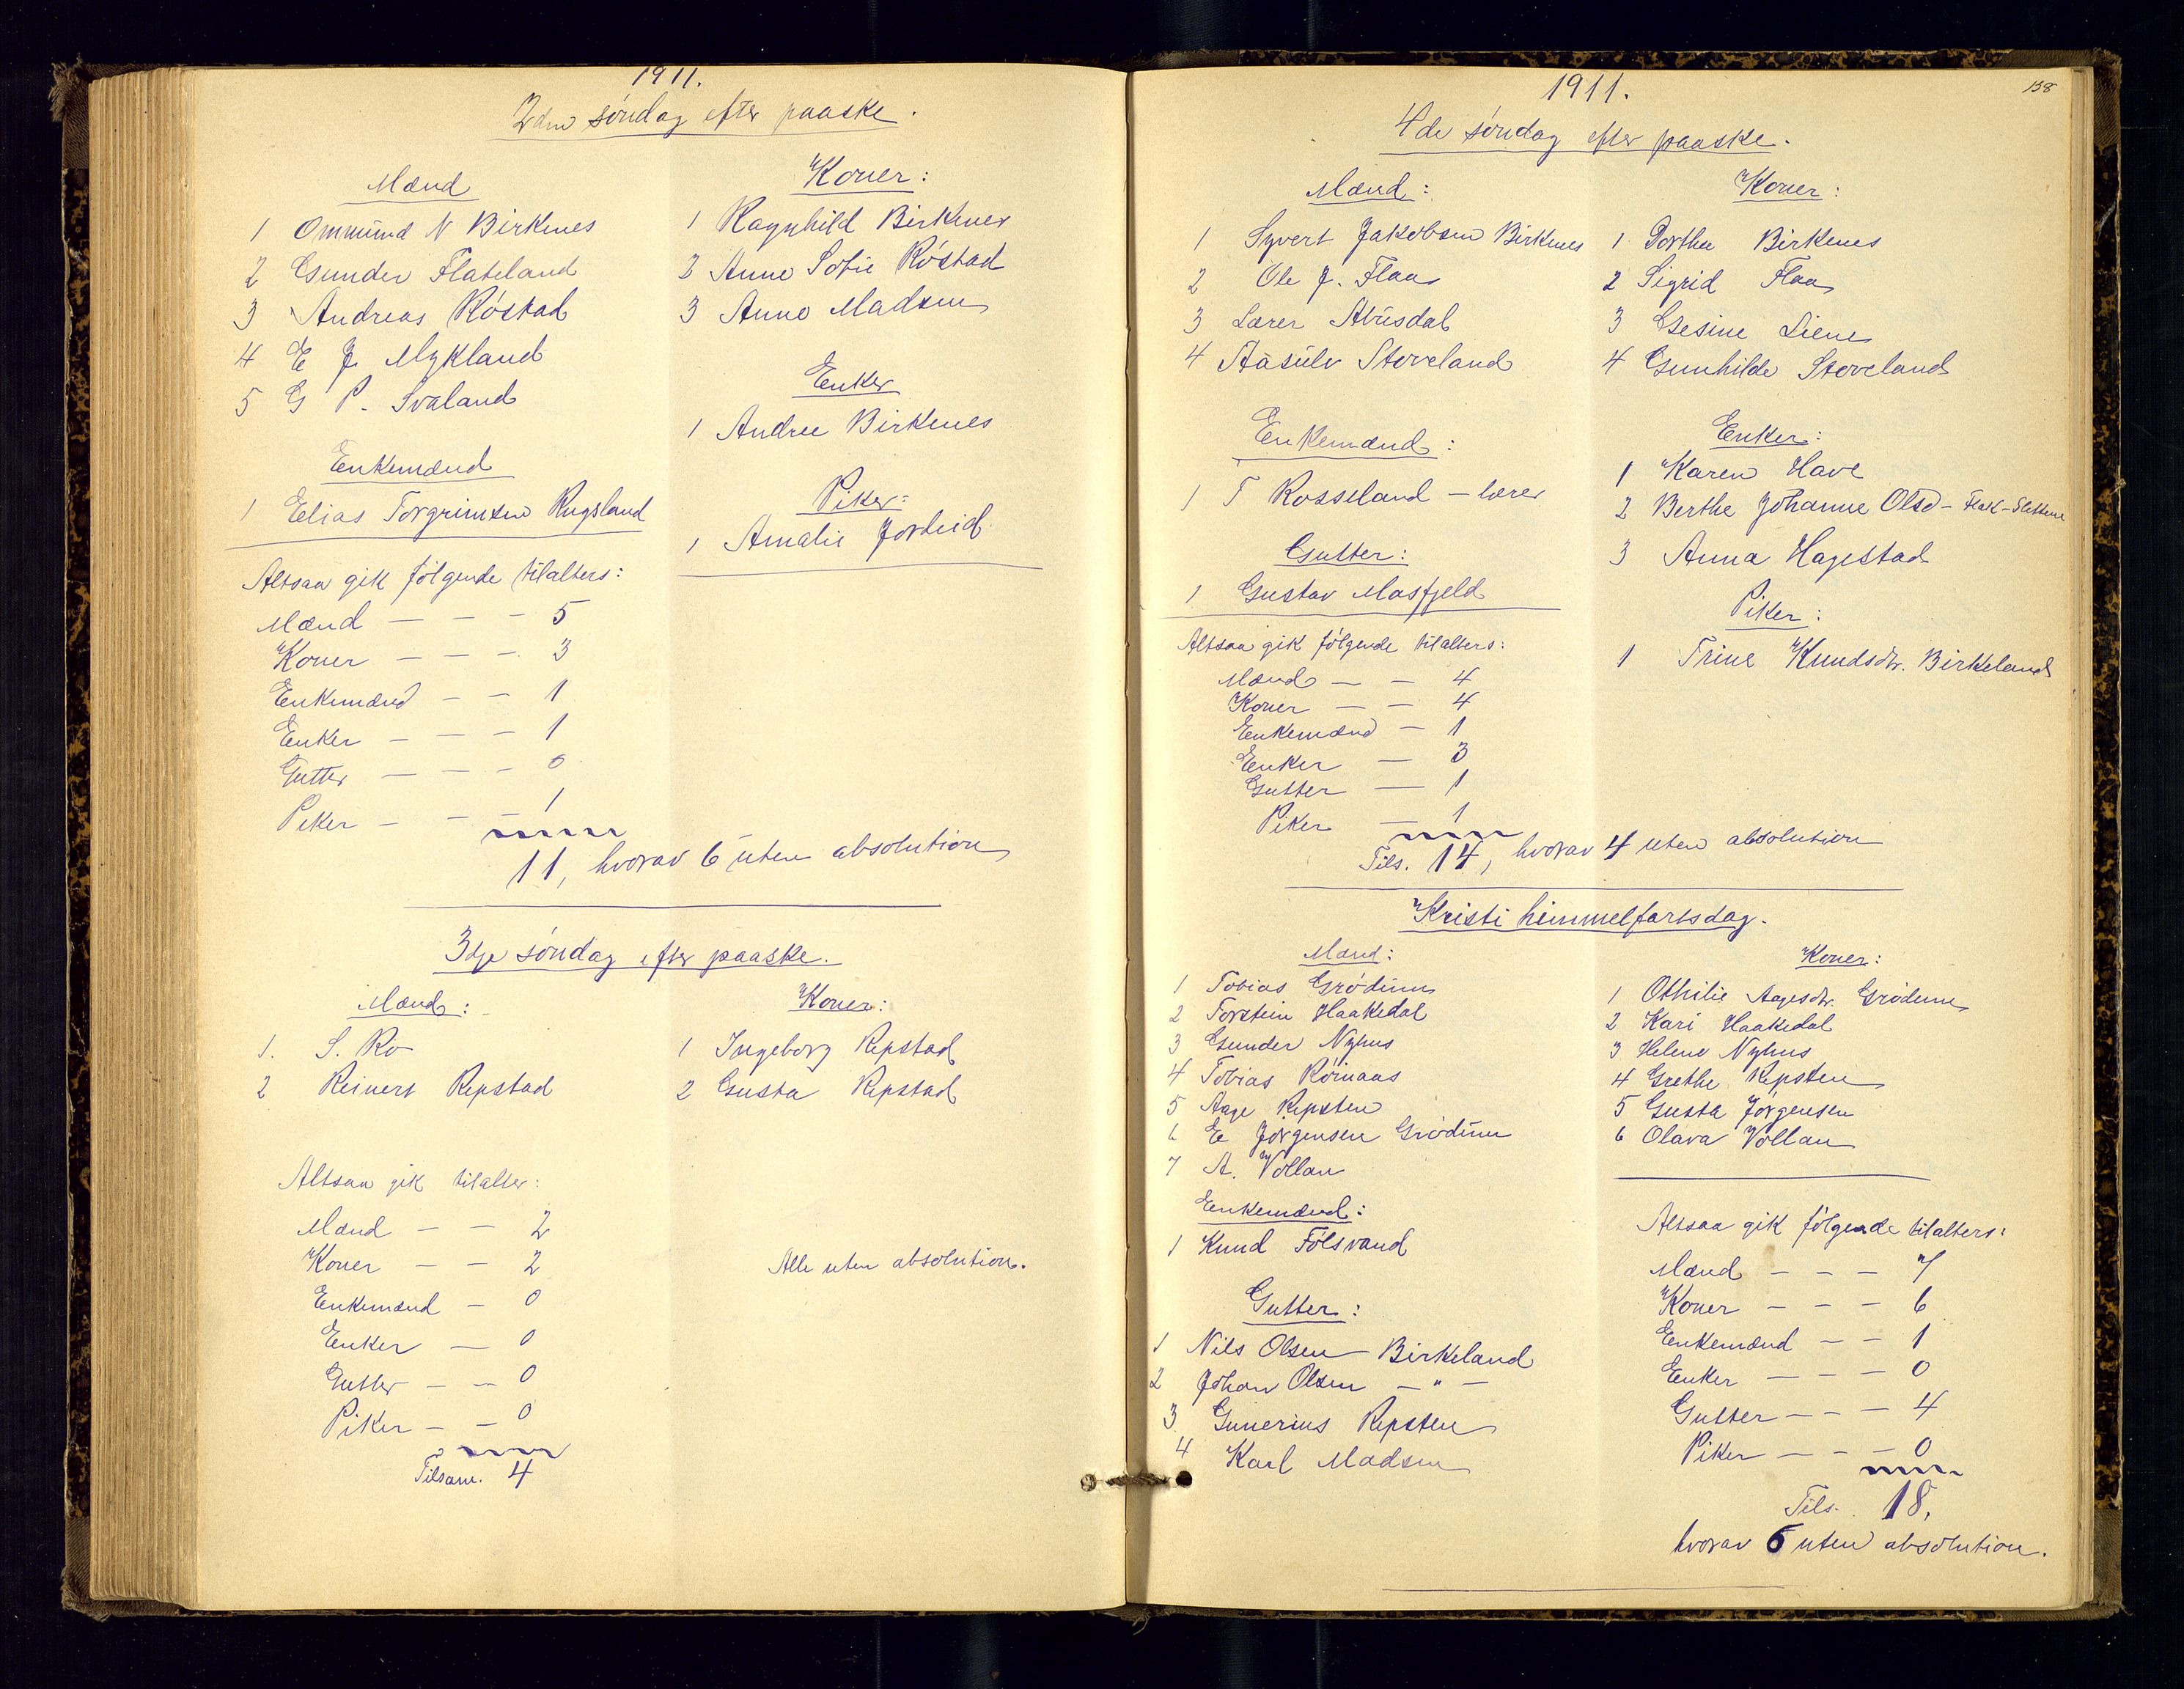 1911.
2den søndag efter paaske.
Mænd
1 Ommund N Birkenes
2 Gunder Flateland
3 Andreas Røstad
4 E J. Mykland
5 G P. Svaland
Enkemænd
1 Elias Torgrimsen Rugsland
Altsaa gik følgende tilalters:
Mænd — — - 5
Koner — — — 3
Enkemænd — — 1
Enker — — — 1
Gutter — — - 0
Piker — — — 1
11, hvorav 6 uten absolution
Koner:
1 Ragnhild Birkenes
2 Anne Sofie Røstad
3 Anne Madsen
Enker
1 Andree Birkenes
Piker:
1 Amalie
3dje søndag efter paaske.
Mænd:
1. S. Ro
2 Reinert Repstad
Koner:
1 Ingeborg Repstad
2 Gusta Repstad
Altsaa gik tilalter:
Mænd — — 2
Koner — — 2
Enkemænd — 0
Enker — 0
Gutter — — 0
Piker — — 0
Tilsam. 4
Alle uten absolution.
138
1911.
4de søndag efter paaske.
Mænd:
1 Syvert Jakobsen Birkenes
2 Ole J. Flaa
3 Lærer Abusdal
4 Aasulv Stoveland
Enkemænd:
1 T Rosseland — lærer
Gutter:
1 Gustav Mosfjeld
Altsaa gik følgende tilalters:
Mænd — — 4
Koner — — 4
Enkemænd — 1
Enker — 3
Gutter — 1
Piker — 1
Tils. 14, hvorav 4 uten absolution
Koner:
1 Dorthee Birkenes
2 Sigrid Flaa
3 Gesine Liene
4 Gunhilde Stoveland
Enker:
1 Karen Have
2 Berthe Johanne Olsd - Flak-Slettene
3 Anna Hagestad
Piker:
1 Trine Knudsdtr. Birkeland
Kristi himmelfartsdag.
Mænd:
1 Tobias Grødum
2 Torstein Haakedal
3 Gunder Nyhus
4 Tobias Røinaas
5 Aage Repsten
6 E Jørgensen Grødum
7 A. Vollan
Enkemænd:
1 Knud Følsvand
Gutter:
1 Nils Olsen Birkeland
2 Johan Olsen — " —
3 Gunerius Repsten
4 Karl Madsen
Koner:
1 Othilie Aagesdtr. Grødum
2 Kari Haakedal
3 Helene Nyhus
4 Grethe Repsten
5 Gusta Jørgensen
6 Olava Vollan
Altsaa gik følgende tilalters:
Mænd — — — 7
Koner — — — 6
Enkemænd — — 1
Enker — — — 0
Gutter — — — 4
Piker — — — 0
Tils. 18,
hvorav 6 uten absolution.